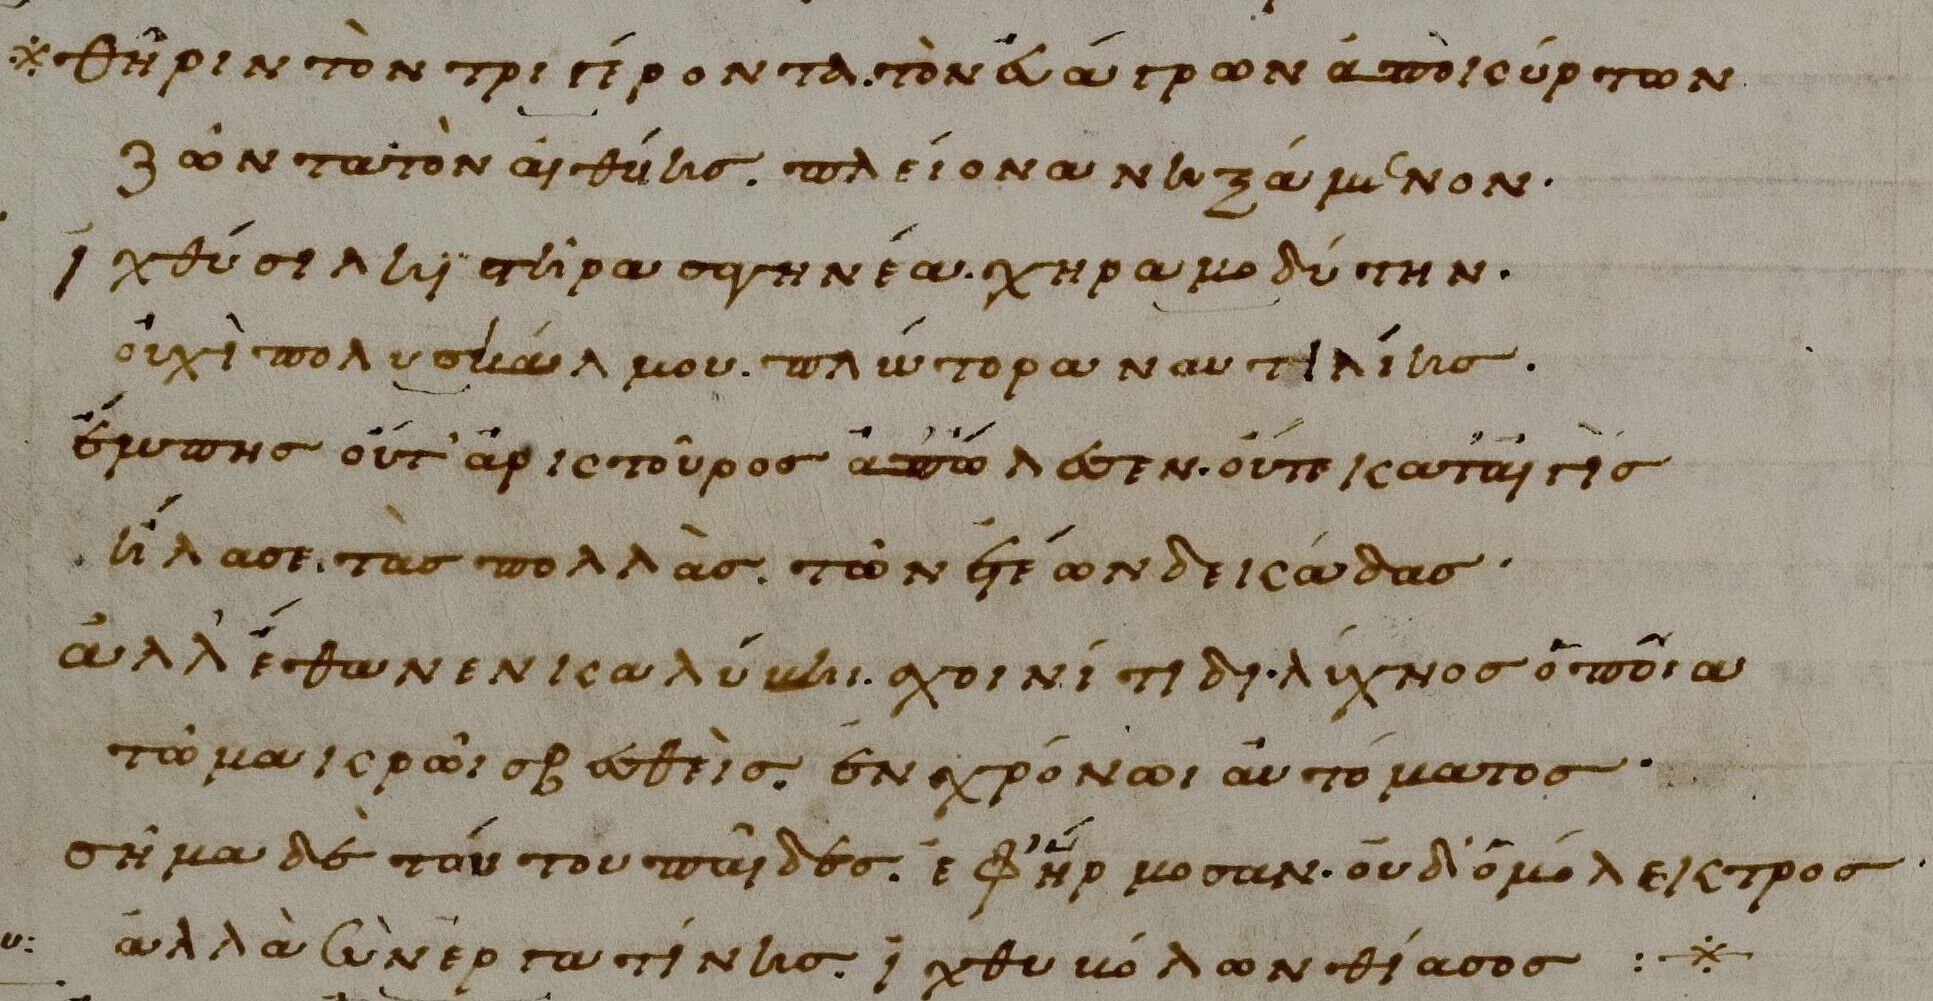 ※ θῆριν τὸν τριγέροντα. τὸν εὐάγρων ἀπὸ κύρτων
ζῶντα τὸν αἰθυίης. πλείονα νηξάμενον.
ἰχθύσι ληϊστῆρα σαγηνέα. χηραμοδύτην.
οὐχὶ πολυσκάλμου. πλώτορα ναυτιλίης.
ἔμπης οὔτ' ἀρκτοῦρος ἀπώλεσεν. οὔτε καταιγὶς
ἤλασε. τὰς πολλὰς. τῶν ἐτέων δεκάδας.
ἀλλ' ἔθανεν καλύβῃ. σχοινίτιδι. λύχνος ὁποῖα
τῶ μακρῶι σβεσθεὶς. ἐν χρόνωι αὐτόματος.
σῆμα δὲ τοῦτου παῖδες. ἐφήρμοσαν. οὐδ' ὁμόλεκτρος
ἀλλὰ συνεργατίνης. ἰχθυβόλων θίασος : ※
υ: